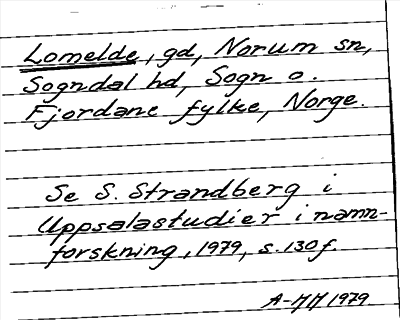 Lomelde, gd, Norum sn,
Sogndal hd, Sogn o.
Fjordane fylke, Norge.
Se S. Strandberg i
Uppsalastudier i namn-
forskning, 1979, s. 130 f.
A-MM 1979